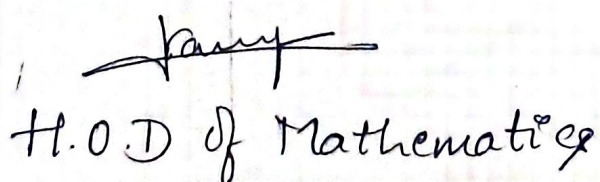 H.O.D of Mathematics